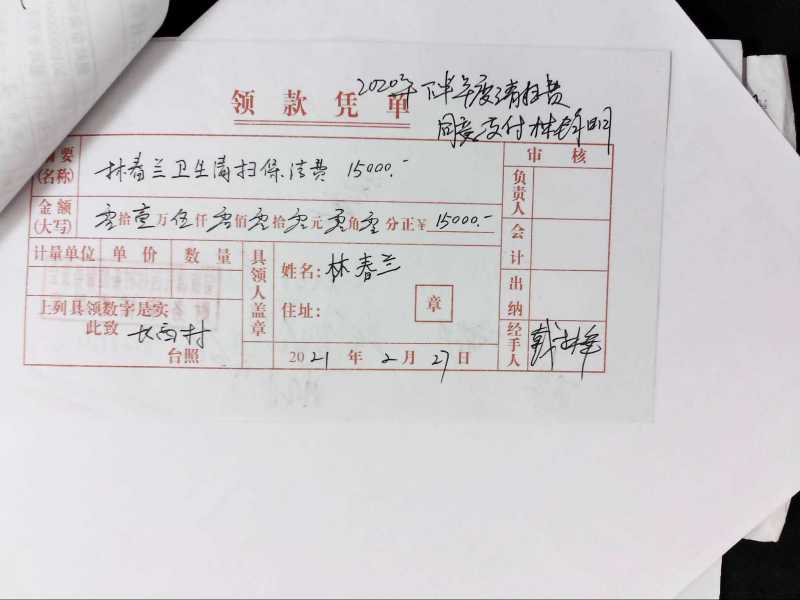 2020年下半年度清扫费
领款凭单
同意支付
摘要(名称) 林春兰卫生清扫保洁费 15000.-
审核
负责人
金额(大写) 零拾壹万伍仟零佰零拾零元零角零分正¥ 15000.-
会计
计量单位 单价 数量
具领人盖章
姓名:林春兰
出纳
住址:
章
上列具领数字是实
此致
台照
2021年2月27日
经手人